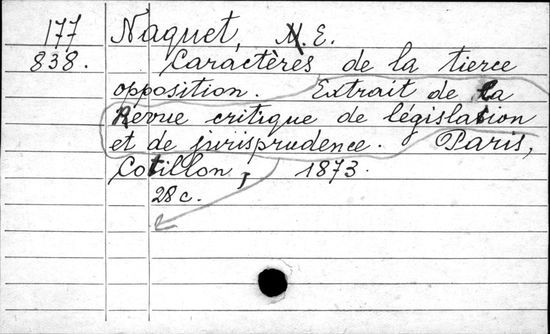 177 Naquet, M. E.
838. Caractères de la tierce
opposition. Extrait de la
Revue critique de législation
et de jurisprudence. Paris,
Cotillon, 1873.
28 c.